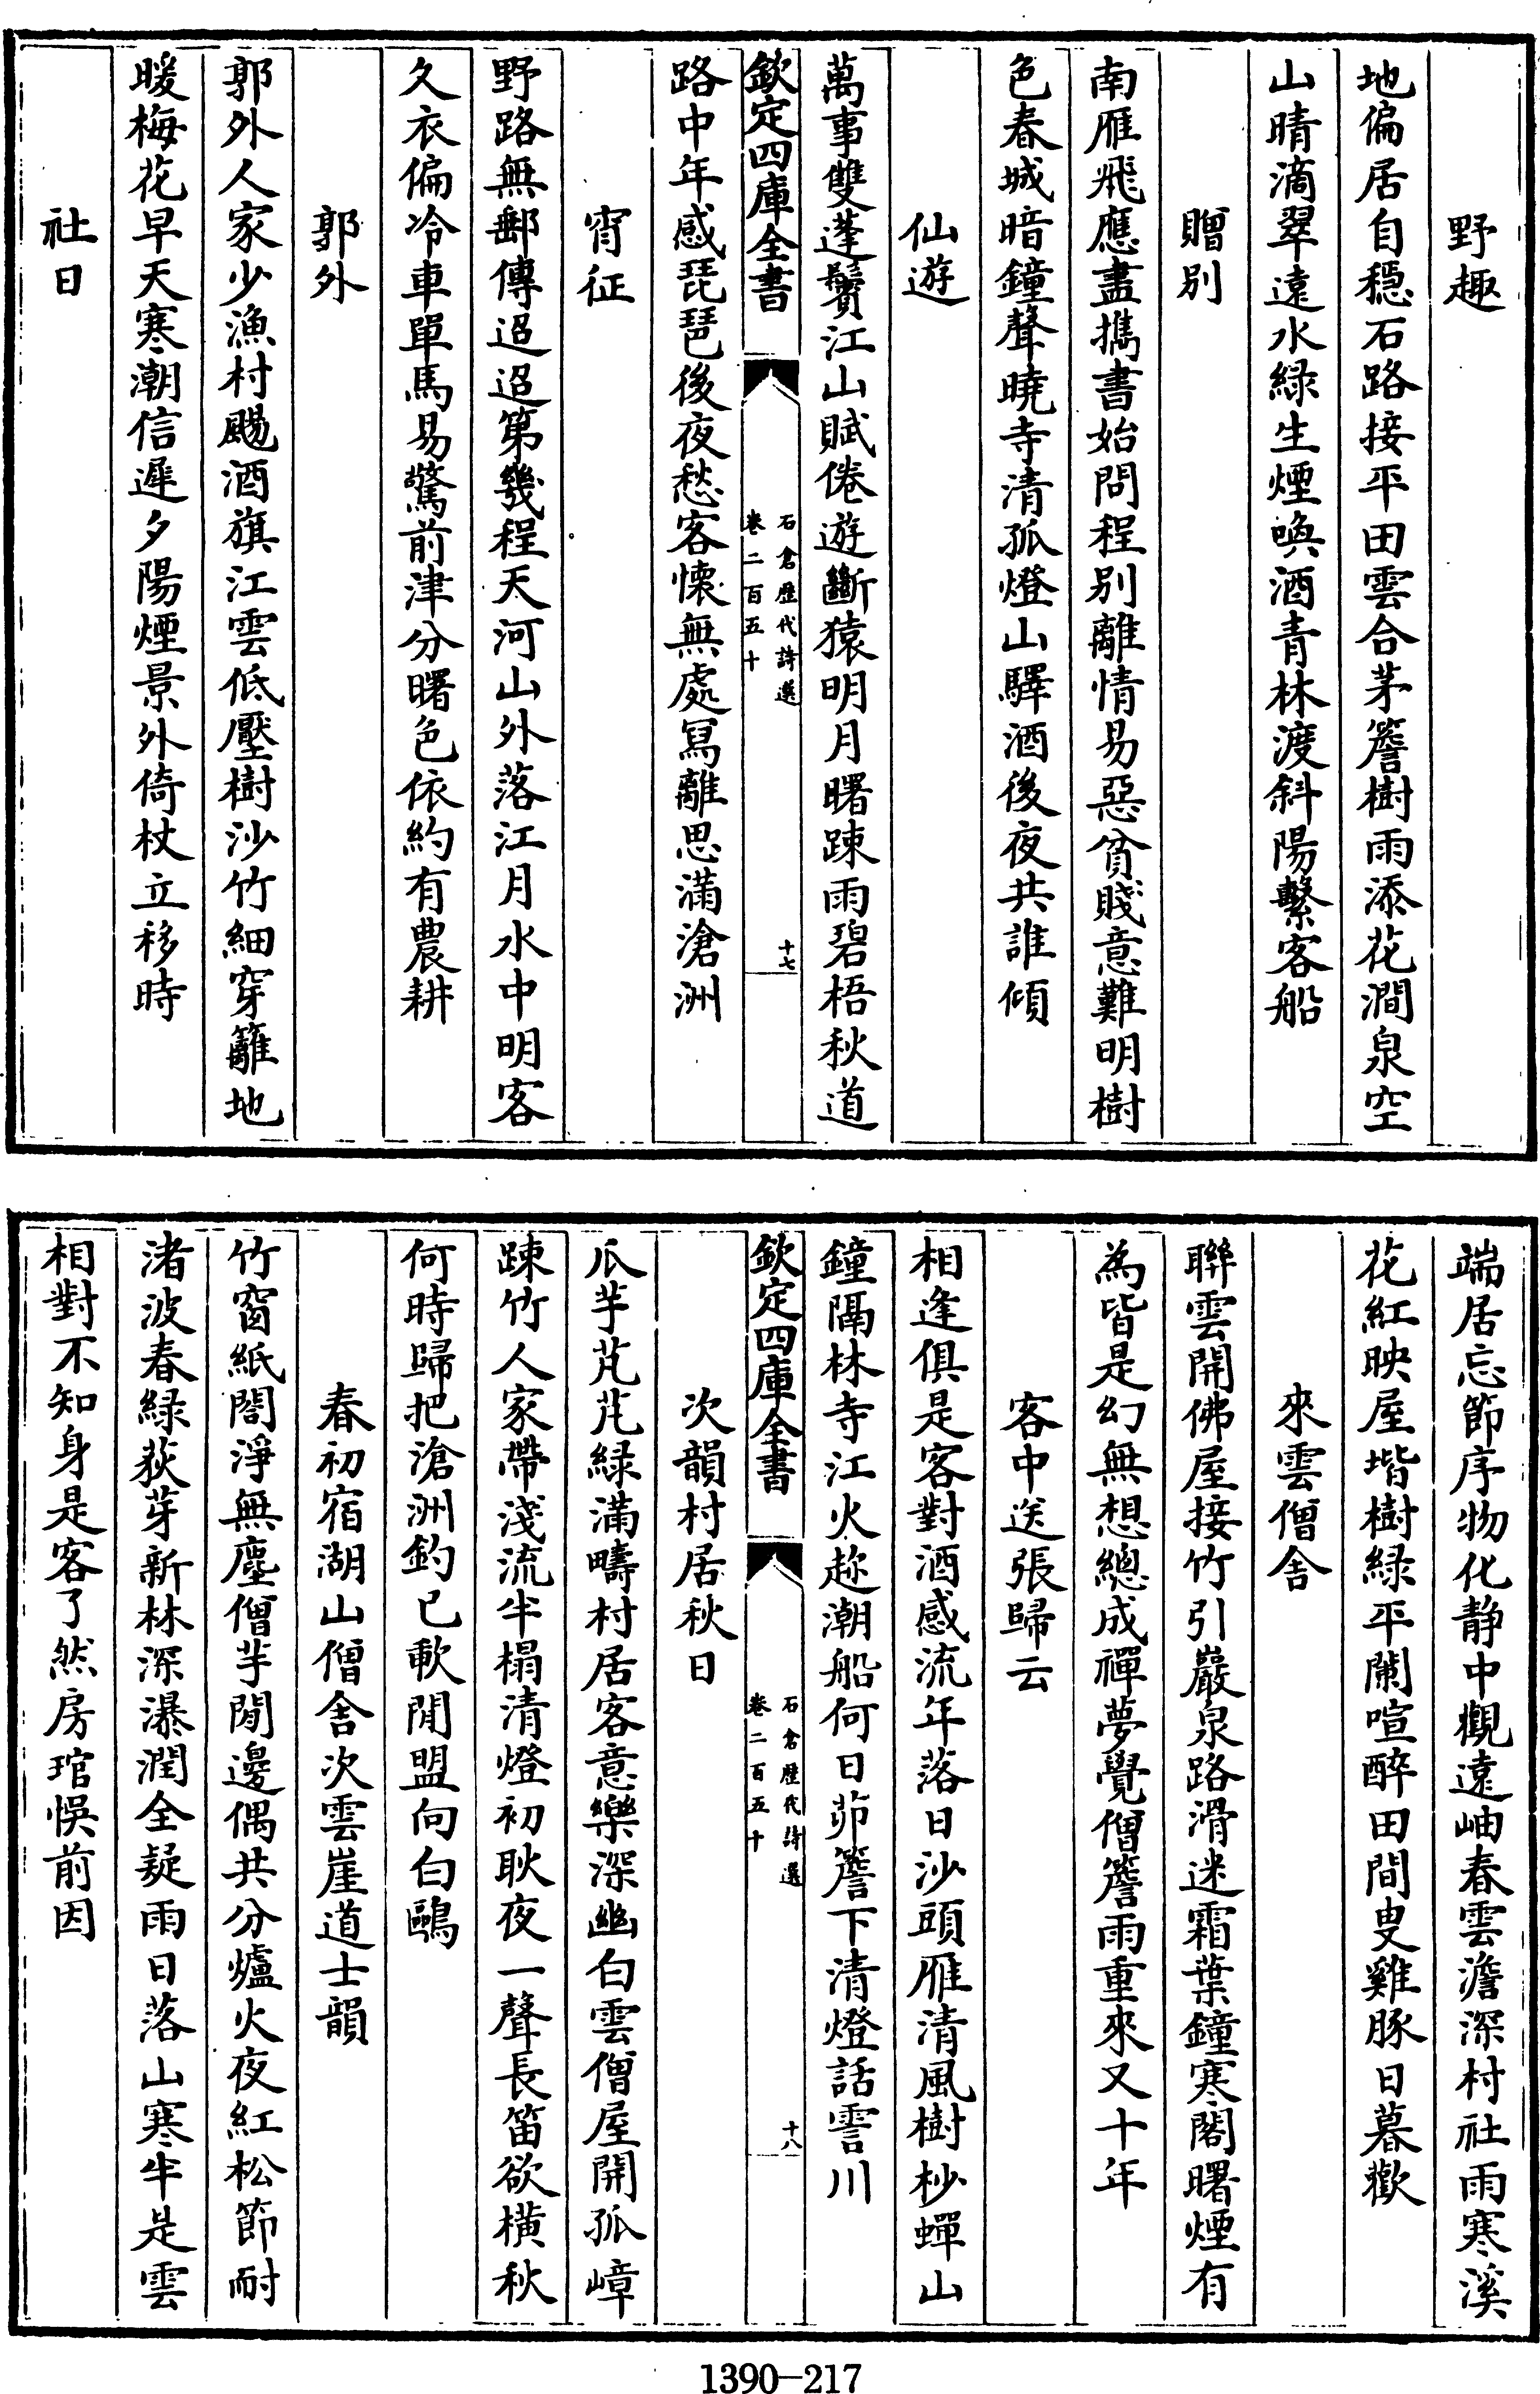 野趣
地偏居自穩石路接平田雲合茅簷樹雨添花澗泉空
山晴滴翠遠水綠生煙喚酒青林渡斜陽繫客船
贈别
南雁飛應盡擕書始問程别離情易惡貧賤意難明樹
色春城暗鐘聲曉寺清孤燈山驛酒後夜共誰傾
仙遊
萬事雙蓬鬢江山賦倦遊斷猿明月曙踈雨碧梧秋道
欽定四庫全書
石倉歴代詩選
卷二百五十
十七
路中年感琵琶後夜愁客懐無處冩離思滿滄洲
宵征
野路無郵傳迢迢第幾程天河山外落江月水中明客
久衣偏冷車單馬易驚前津分曙色依約有農耕
郭外
郭外人家少漁村颺酒旗江雲低壓樹沙竹細穿籬地
暖梅花早天寒潮信遲夕陽煙景外倚杖立移時
社日
端居忘節序物化静中觀遠岫春雲澹深村社雨寒溪
花紅映屋堦樹緑平闌喧醉田間叟雞豚日暮歡
來雲僧舎
聯雲開佛屋接竹引巖泉路滑迷霜葉鐘寒閣曙煙有
為皆是幻無想總成禪夢覺僧簷雨重來又十年
客中送張歸云
相逢俱是客對酒感流年落日沙頭雁清風樹杪蟬山
鐘隔林寺江火趂潮船何日茆簷下清燈話霅川
欽定四庫全書
石倉歴代詩選
卷二百五十
十八
次韻村居秋日
瓜芋芃芃緑滿疇村居客意樂深幽白雲僧屋開孤嶂
踈竹人家帶淺流半榻清燈初耿夜一聲長笛欲横秋
何時歸把滄洲釣已軟閒盟向白鷗
春初宿湖山僧舎次雲崖道士韻
竹窗紙閤淨無塵僧芋閒邊偶共分爐火夜紅松節耐
渚波春緑荻芽新林深瀑潤全疑雨日落山寒半是雲
相對不知身是客了然房琯悞前因
1390-217